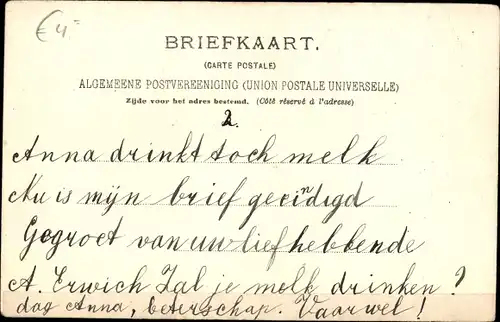 € 4-
BRIEFKAART.
(CARTE POSTALE)
ALGEMEENE POSTVEREENIGING (UNION POSTALE UNIVERSELLE)
Zijde voor het adres bestemd. (Côté réservé à l'adresse)
2.
Anna drinkt toch melk
Nu is mijn brief geeindigd
Gegroet van uw liefhebbende
A. Erwich Zal je melk drinken?
dag Anna, beterschap. Vaarwel!